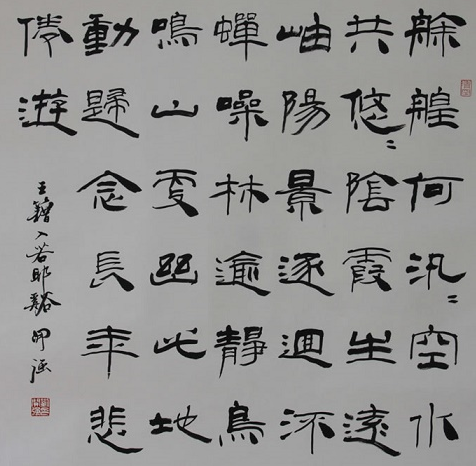 艅艎何汎〻空水
共悠〻陰霞生遠
岫陽景逐迴流
蟬噪林逾靜鳥
鳴山更幽此地
動歸念長年悲
倦遊
王籍入若耶谿